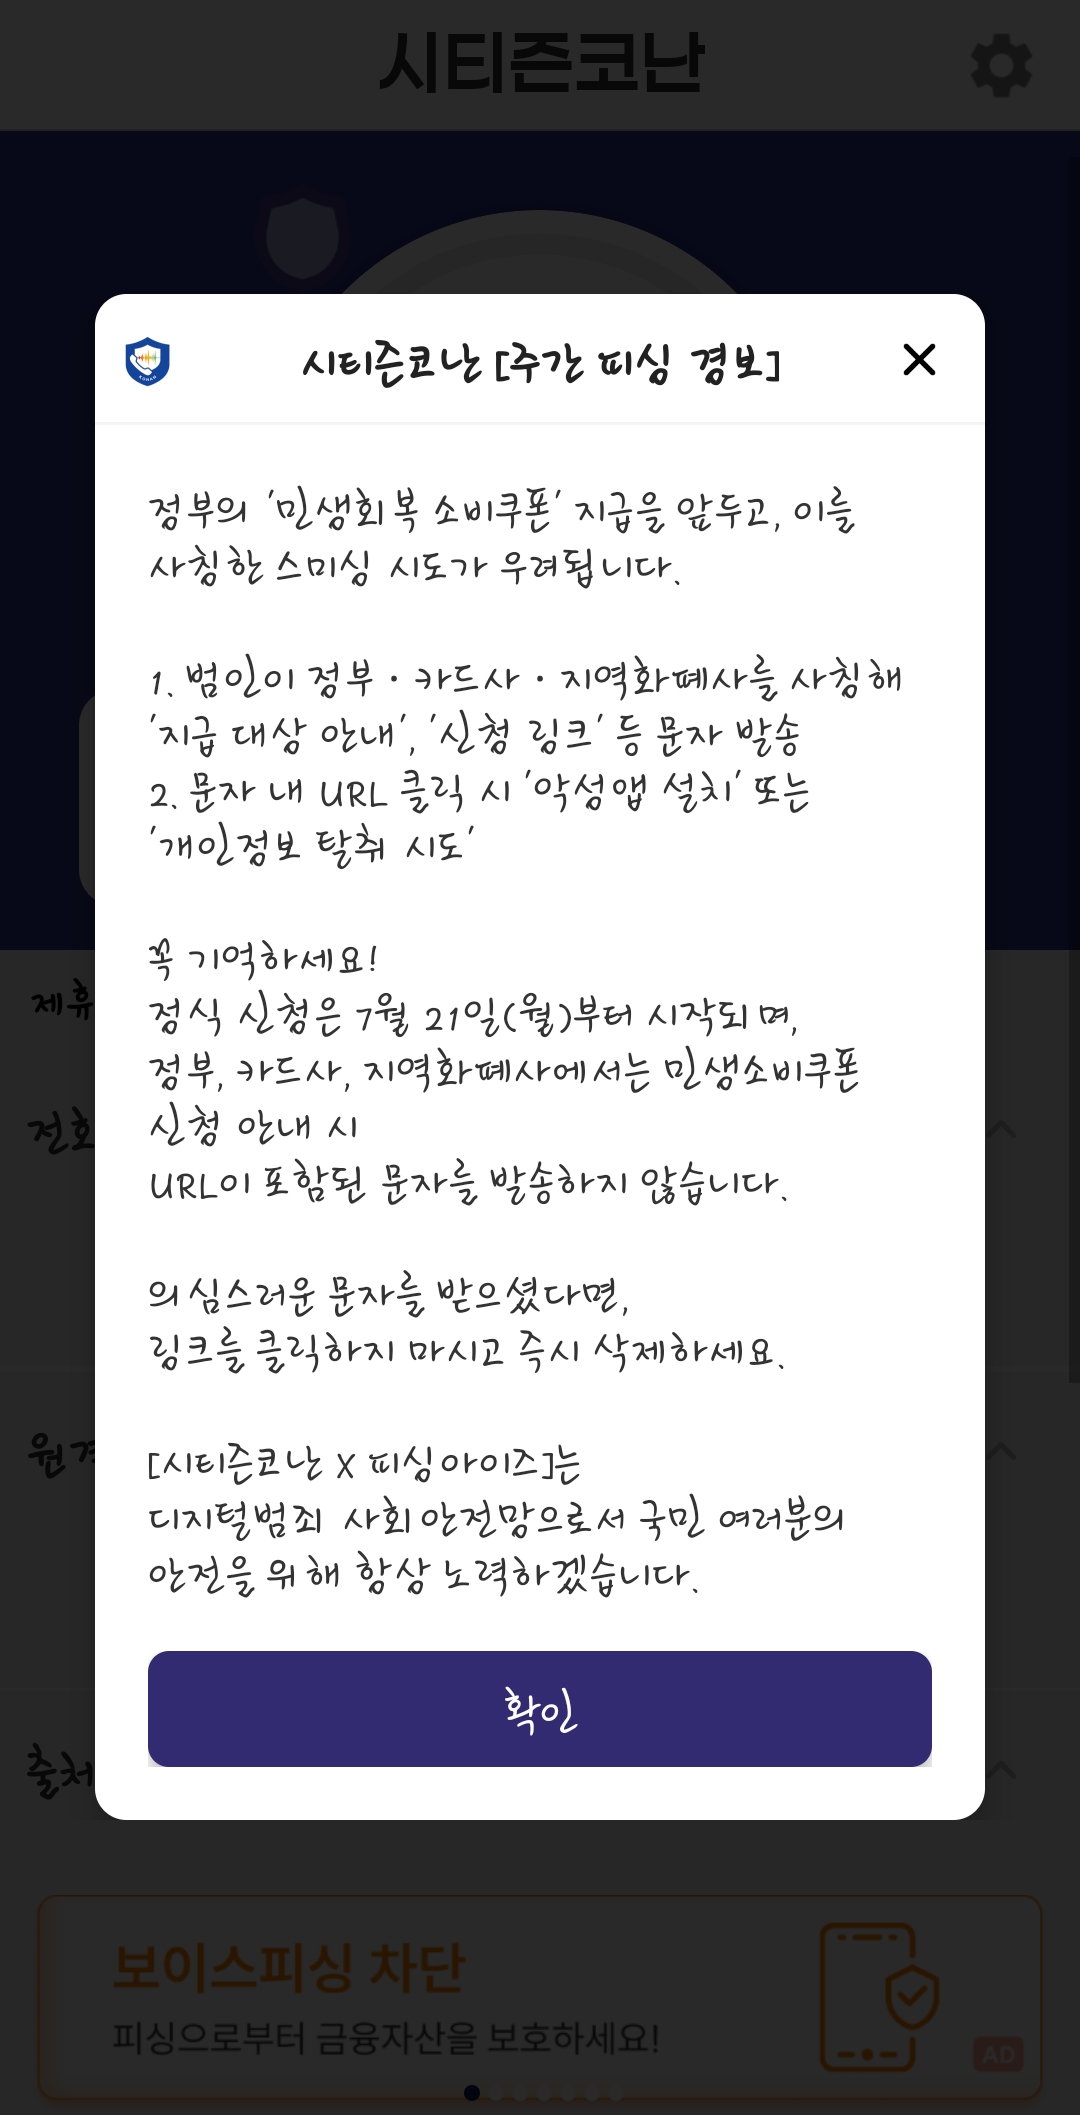 시티즌코난
시티즌코난 [주간 피싱 경보]
정부의 '민생회복 소비쿠폰' 지급을 앞두고, 이를
사칭한 스미싱 시도가 우려됩니다.
1. 범인이 정부·카드사·지역화폐사를 사칭해
'지급 대상 안내', '신청 링크' 등 문자 발송
2. 문자 내 URL 클릭 시 '악성앱 설치' 또는
'개인정보 탈취 시도'
꼭 기억하세요!
정식 신청은 7월 21일(월)부터 시작되며,
정부, 카드사, 지역화폐사에서는 민생소비쿠폰
신청 안내 시
URL이 포함된 문자를 발송하지 않습니다.
의심스러운 문자를 받으셨다면,
링크를 클릭하지 마시고 즉시 삭제하세요.
[시티즌코난 X 피싱아이즈]는
디지털범죄 사회안전망으로서 국민 여러분의
안전을 위해 항상 노력하겠습니다.
확인
제휴
전화
원격
출처
보이스피싱 차단
피싱으로부터 금융자산을 보호하세요!
AD